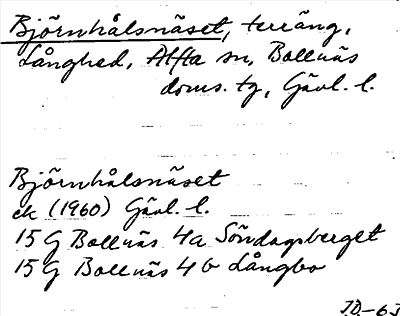 Björnhålsnäset, terräng,
Långhed, Alfta sn, Bollnäs
doms. tg, Gävl. l.
Björnhålsnäset
ek (1960) Gävl. l.
15 G Bollnäs 4a Söndagsberget
15 G Bollnäs 4 b Långbo